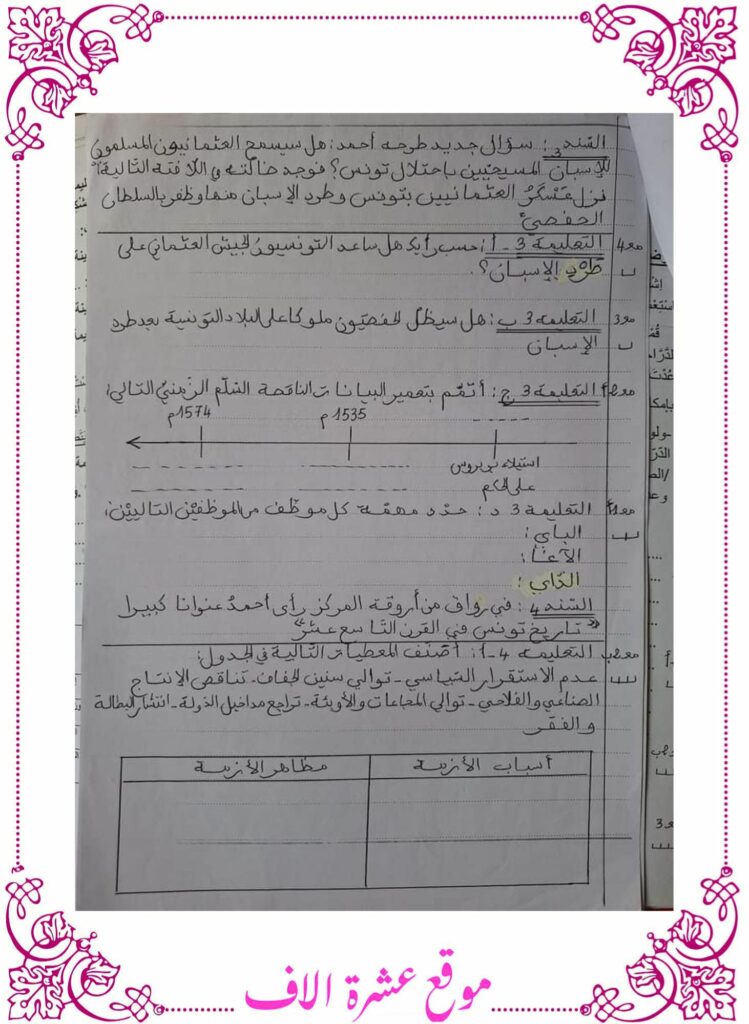 السّند 3: سؤال جديد طرحه أحمد: هل سيسمح العثمانيون المسلمون
للإسبان المسيحيّين باحتلال تونس؟ فوجد ضالّته في اللّافتة التّالية:
"نزل عَسْكَرُ العثمانيين بتونس وطرد الإسبان منها وظفر بالسلطان
الحفصيّ"
مع4 التعليمة 3-أ: حسب رأيك هل ساعد التونسيون الجيش العثماني على
طَرْدِ الإسبان؟.
مع3 التعليمة 3 ب: هل سيظلّ الحفصيّون ملوكا على البلاد التونسية بعد طرد
الإسبان
مع2أ التعليمة 3 ج: أتمّم بتعمير البيانات الناقصة السّلّم الزّمنيّ التالي:
1574م 1535م
استيلاء بربروس
على الحكم
مع1أ التعليمة 3 د: حدّد مهمّة كل موظّف من الموظّفيْن التاليين:
الباي:
الآغا:
الدّاي:
السّند 4: في رواق من أروقة المركز رأى أحمدُ عنوانا كبيرا
"تاريخ تونس في القرن التّاسع عشر"
مع2ب التعليمة 4-1: أصنّف المعطيات التّالية في الجدول:
عدم الاستقرار السّياسي - توالي سنين الجفاف - تناقص الإنتاج
الصناعي والفلاحي - توالي المجاعات والأوبئة - تراجع مداخيل الدولة - انتشار البطالة
والفقر
أسباب الأزمة مظاهر الأزمة
موقع عشرة الاف